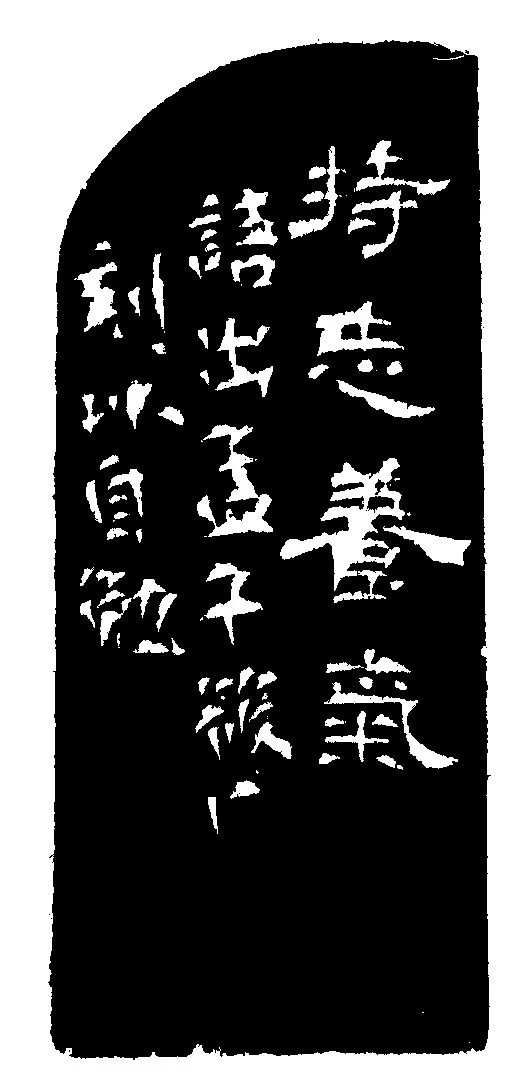 持志養氣
語出孟子
刻以自勉